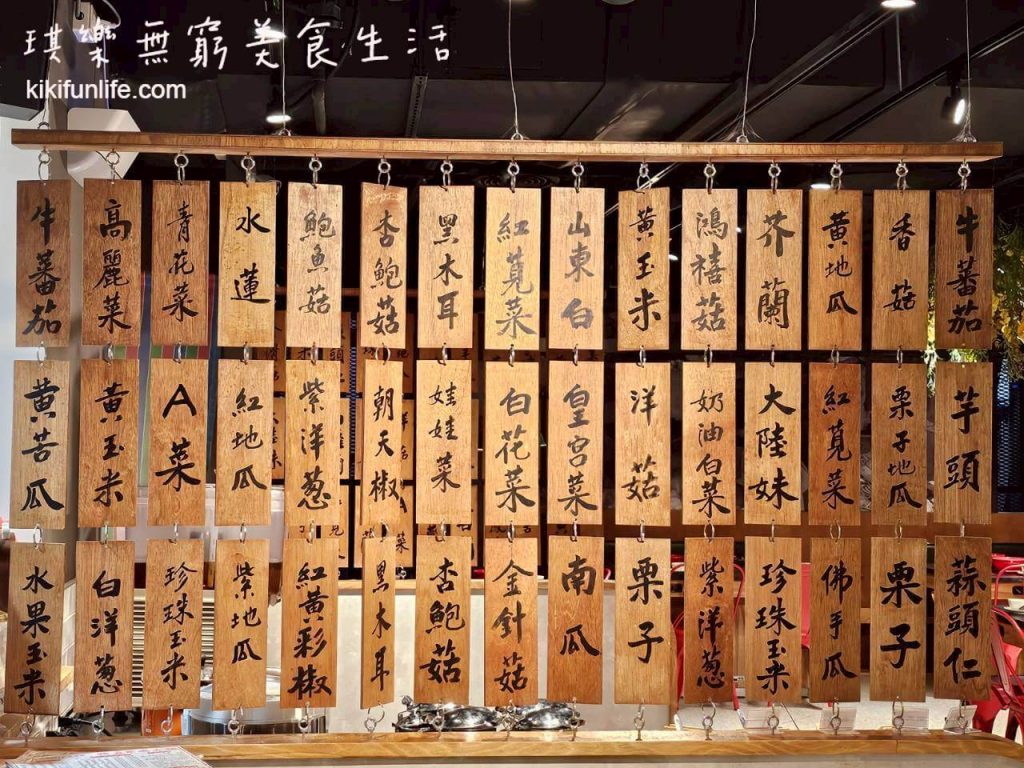 琪樂無窮美食生活
kikifunlife.com
牛蕃茄
高麗菜
青花菜
水蓮
鮑魚菇
杏鮑菇
黑木耳
紅莧菜
山東白
黃玉米
鴻禧菇
芥蘭
黃地瓜
香菇
牛蕃茄
黃苦瓜
黃玉米
A菜
紅地瓜
紫洋葱
朝天椒
娃娃菜
白花菜
皇宮菜
洋菇
奶油白菜
大陸妹
紅莧菜
栗子地瓜
芋頭
水果玉米
白洋葱
珍珠玉米
紫地瓜
紅黃彩椒
黑木耳
杏鮑菇
金針菇
南瓜
栗子
紫洋葱
珍珠玉菜
佛手瓜
栗子
蒜頭仁